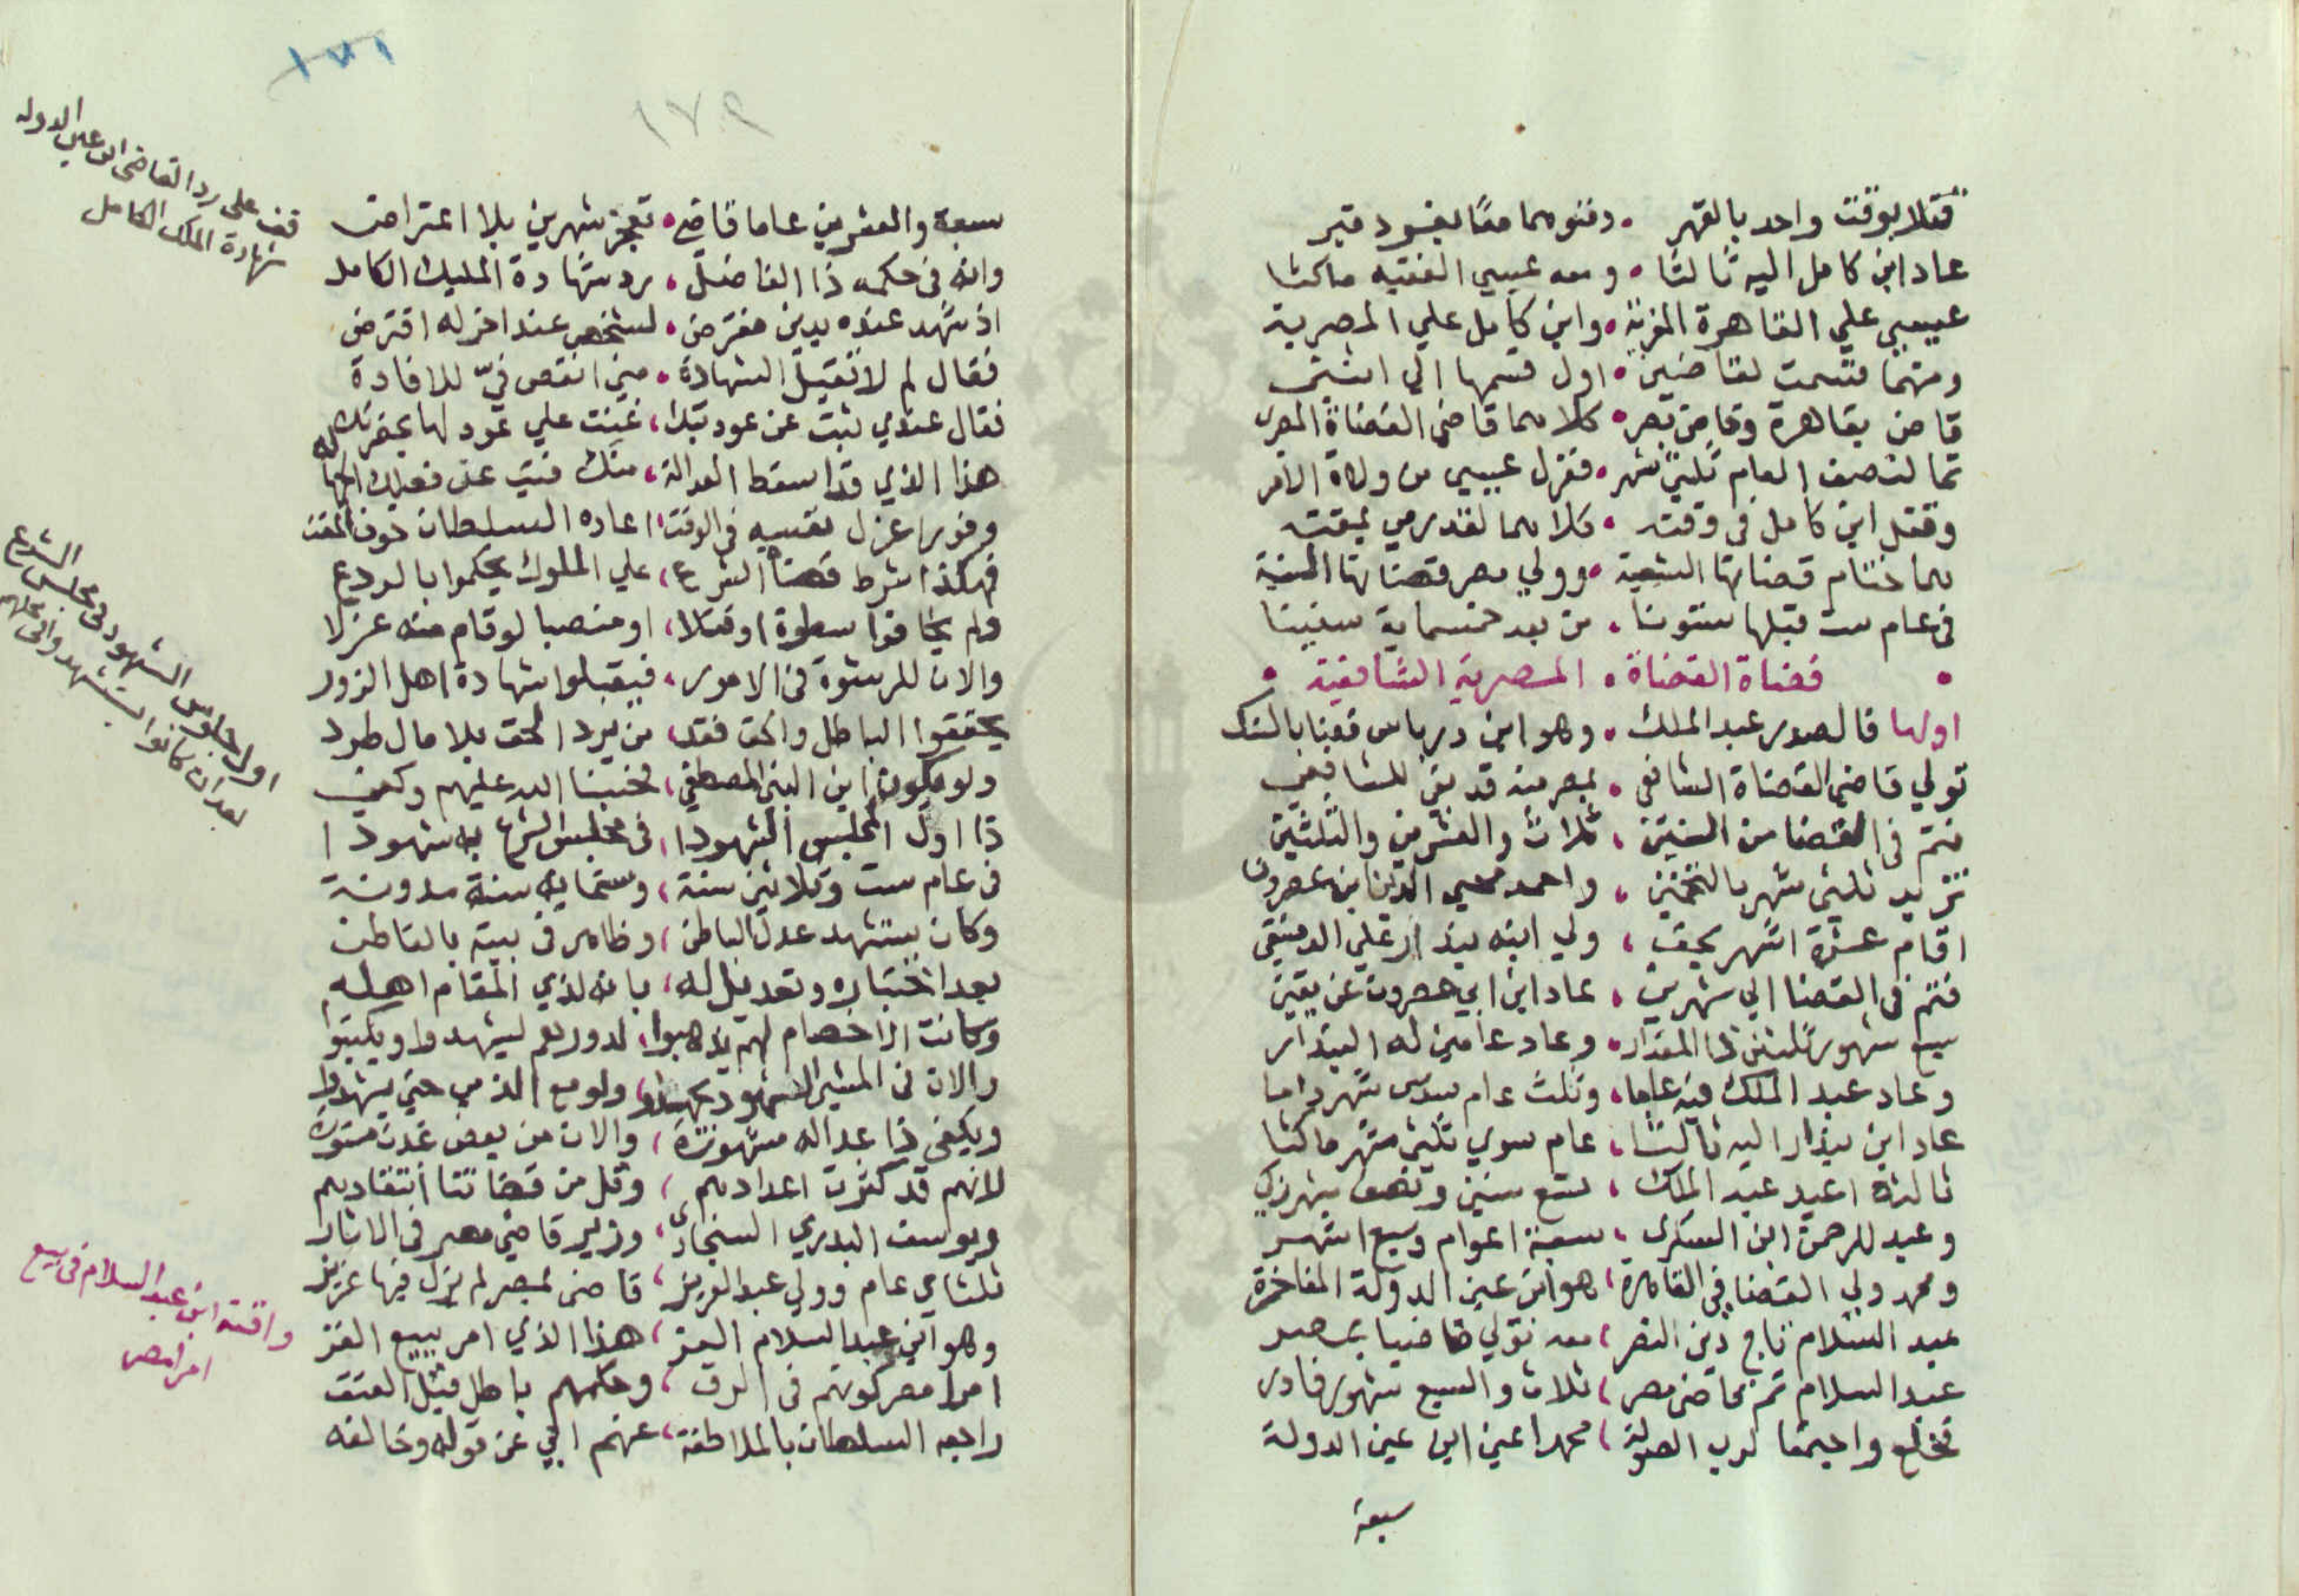 قتلا بوقت واحد بالقهر • ودفنوهما معًا بغير قبر
عاد ابن كامل اليه ثالثا • ومعه عيسي الفقيه ماكثا
عيسي علي القاهرة المعزية • وابن كامل علي المصرية
ومنهما قسمت لقاضيين • اول قسمها الي اثنين
قاض بقاهرة وقاض بمصر • كلاهما قاضي القضاة المصري
تما لنصف العام ثلثي شهر • فعزل عيسي من ولاة الامر
وقتل ابن كامل في وقته • كلاهما لقد رمي بمقته
هما ختام قضاتها الشيعية • وولي مصر قضاتها السنية
في عام ست قبلها ستونا • من بعد خمسماية سنينا
• قضاة القضاة • المصرية الشافعية •
اولها فالصدر عبد الملك • وهو ابن درباس
تولي قاضي القضاة الشافعي • بمصر منه قد بقي للشافعي
فتم في القضا من السنين ، ثلاث والعشرين والثلثين
تزيد ثلثي شهر بالتخمين ، واحمد محيي الدين ابن عصرون
اقام عشرة اشهر بحق ، ولي ابنه بندار علي الدمشقي
فتم في القضا الي شهرين ، عاد ابن ابي عصرون عن يقين
سبع شهور ثلثين ذا المقدار • وعاد عامين له البندار
وعاد عبد الملك فيه عاما ، وثلث عام سدس شهر داما
عاد ابن بندار اليه ثالثا ، عام سوي ثلثي شهر ماكثا
ثالثة اعيد عبد الملك ، تسع سنين ونصف شهر
وعبد الرحمن ابن السكري ، سبعة اعوام وسبع اشهر
ومحمد ولي القضا في القاهرة ، هو ابن عين الدولة المفاخرة
عبد السلام تاج دين النصر ، معه تولي قاضيا بمصر
عبد السلام تم بقاضي مصر ، ثلاث والسبع شهور فادر
محمدا عين ابن عين الدولة
سبعة
١٧١
١٧٩
سبعة والعشرين عاما قاضي • تعجز شهرين بلا اعتراض
وانه في حكمه ذا الفاضل ، رد شهادة المليك الكامل
اذ شهد عنده بدين مفترض • لشخص عند اخر له اقترض
فقال لم لا تقبل الشهادة •
فقال عندي ثبت عن عودتك ، غنت علي عود لها بحضرتك
هذا الذي قد اسقط العدالة ، منك فتب عن فعلك الجهالة
وفورا عزل نفسه في الوقت ، اعاده السلطان خوف المقت
فهكذا شرط قضاة الشرع ، علي الملوك يحكموا بالردع
ولم يخافوا سطوة او قتلا ، او منصبا لو قام منه عزلا
والان للرشوة في الامور ، فيقبلوا شهادة اهل الزور
يحققوا الباطل والحق فقد ، من يرد الحق بلا مال طرد
ولو يكون ابن النبي المصطفي ، فحسبنا الله عليهم وكفي
ذا اول المجلس الشهودا ، في مجلس الشرع به شهودا
في عام ست وثلاثين سنة ، وستماية سنة مدونة
وكان يستشهد عدل الباطن ، وظاهر في بيته بالقاطن
بعد اختباره وتعديل له ، بانه لذي المقام اهله
وكانت الاخصام لهم يذهبوا ، لدورهم ليشهدوا ويكتبوا
والان ولو مع الذمي حتي يشهدوا
ويكفي ذا عداله مشهورة ، والان من بعض غدت مستورة
لانهم قد كثرت اعدادهم ، وقل من قضاتنا انتقادهم
ويوسف البدري السنجاري ، وزير قاضي مصر في الاثار
ثلثاي عام وولي عبد العزيز ، قاضي بمصر لم يزل فيها عزيز
وهو ابن عبد السلام العز ، هذا الذي امر ببيع الغز
امرا مصر كونهم في الرق ، وحكمهم باطل قبل العتق
راجعه السلطان بالملاطفة ، عنهم ابي عن قوله وخالفه
قف علي رد القاضي ابن عين الدولة
شهادة الملك الكامل
اول جلوس الشهود في مجلس الشرع
بعد ان كانوا
واقعة ابن عبد السلام في بيع
امرا مصر